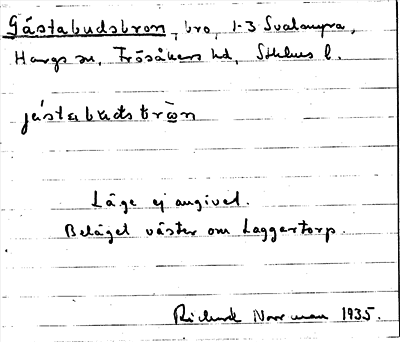 Gästabudsbron, bro, 1-3 Svalmyra,
Hargs sn, Frösåkers hd, Sthlms l.
jástabudsbròn
Läge ej angivet.
Beläget väster om Laggertorp.
Richard Norrman 1935.